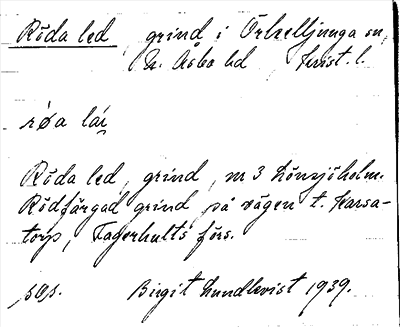 Röda led, grind i Örkelljunga sn,
N. Åsbo hd, Krist. l.
røa lái
Röda led, grind, nr 3 Lönsjöholm.
Rödfärgad grind på vägen t. Karsa-
torp, Fagerhults förs.
Birgit Lundkvist 1939.